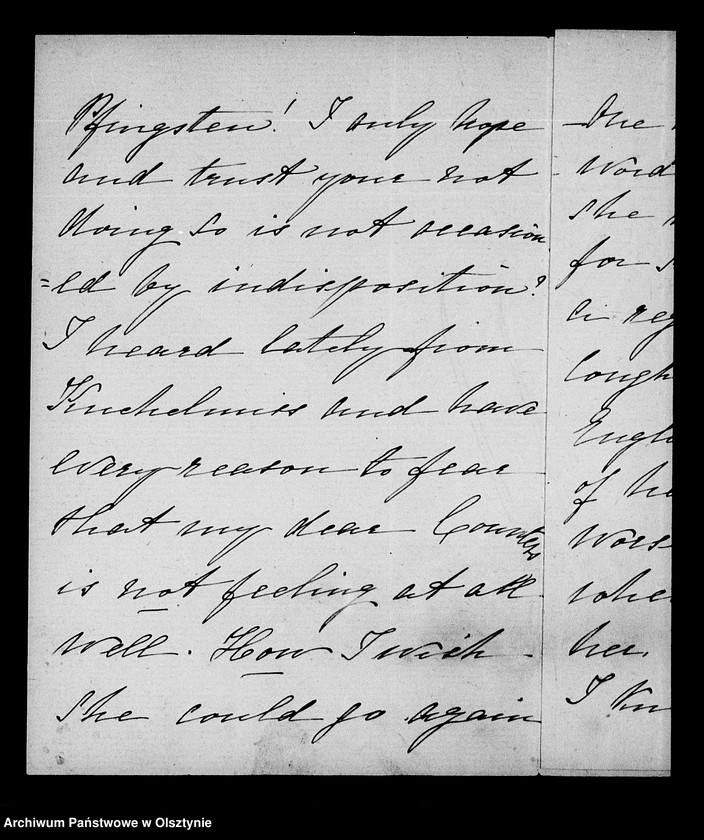 Pfingsten! I only hope
and trust your not
doing so is not occasion
=ed by indisposition?
I heard lately from
and have
every reason to fear
that my dear Countess
is not feeling at all
well. How I wish
she could go again
One
word
she
for
ci reg
cough
Engl
of he
wors
whe
her.
I kn
Archiwum Państwowe w Olsztynie